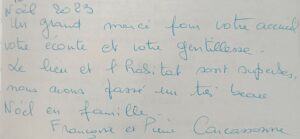 Noël 2023
Un grand merci pour votre accueil
votre écoute et votre gentillesse.
Le lieu et l'habitat sont superbes,
nous avons passé un très beau
Noël en famille.
Françoise et Pierre Carcassonne